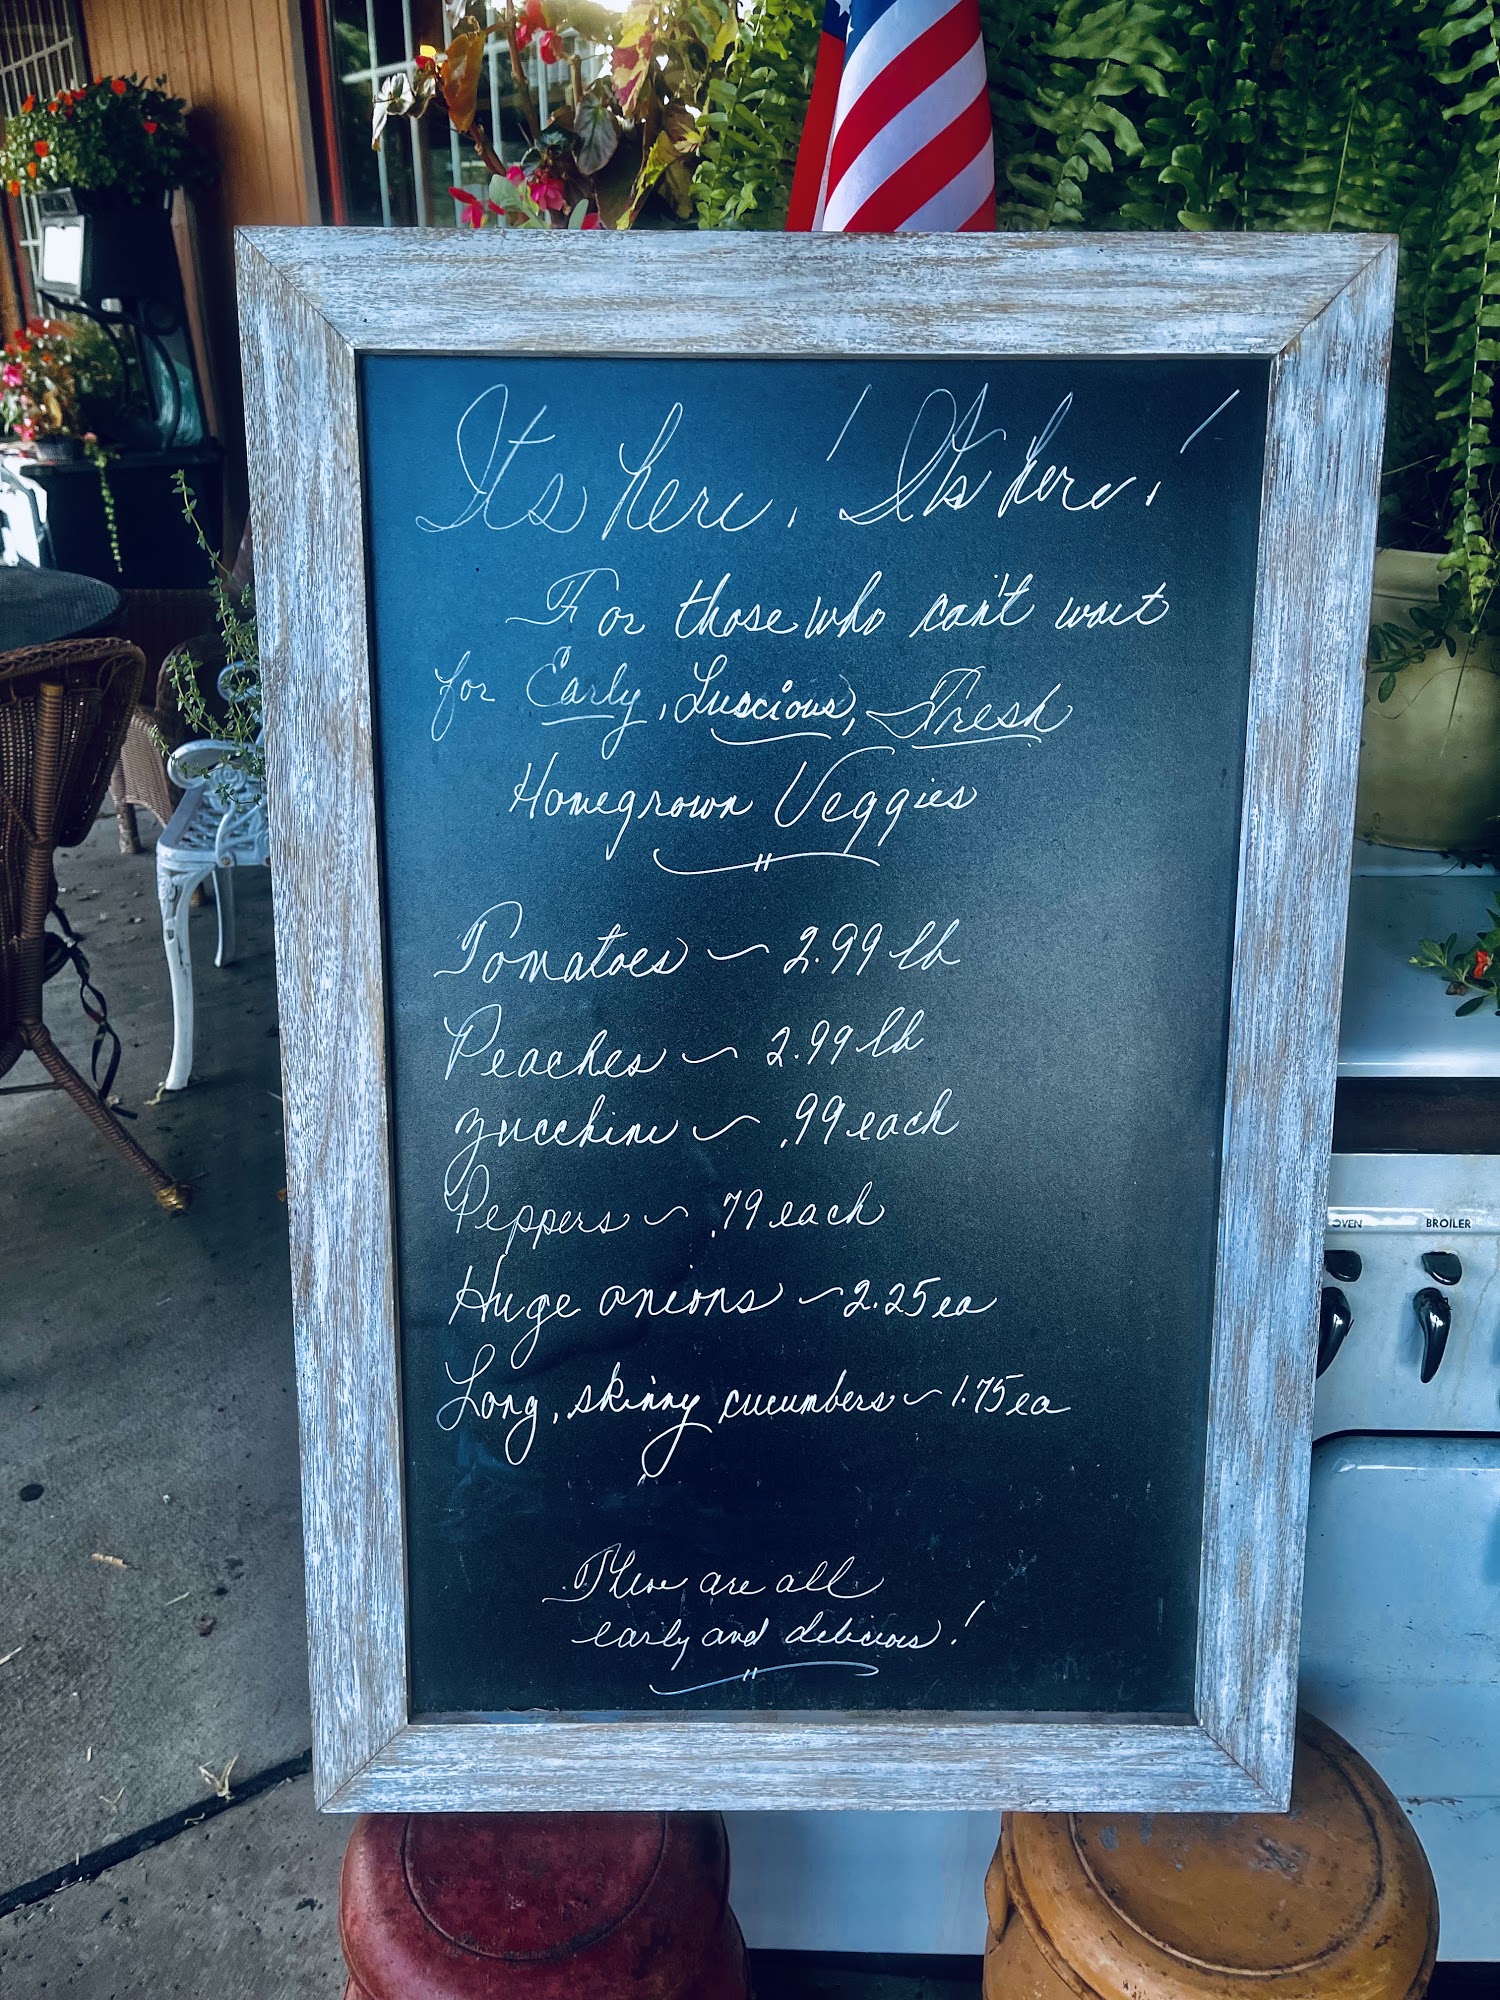 Its here! Its here!
For those who can't wait
for Early, Luscious, Fresh
Homegrown Veggies
Tomatoes ~ 2.99 lb
Peaches ~ 2.99 lb
Zucchini ~ .99 each
Peppers ~ .79 each
Huge onions ~ 2.25 ea
Long, skinny cucumbers ~ 1.75 ea
These are all
early and delicious!
OVEN BROILER